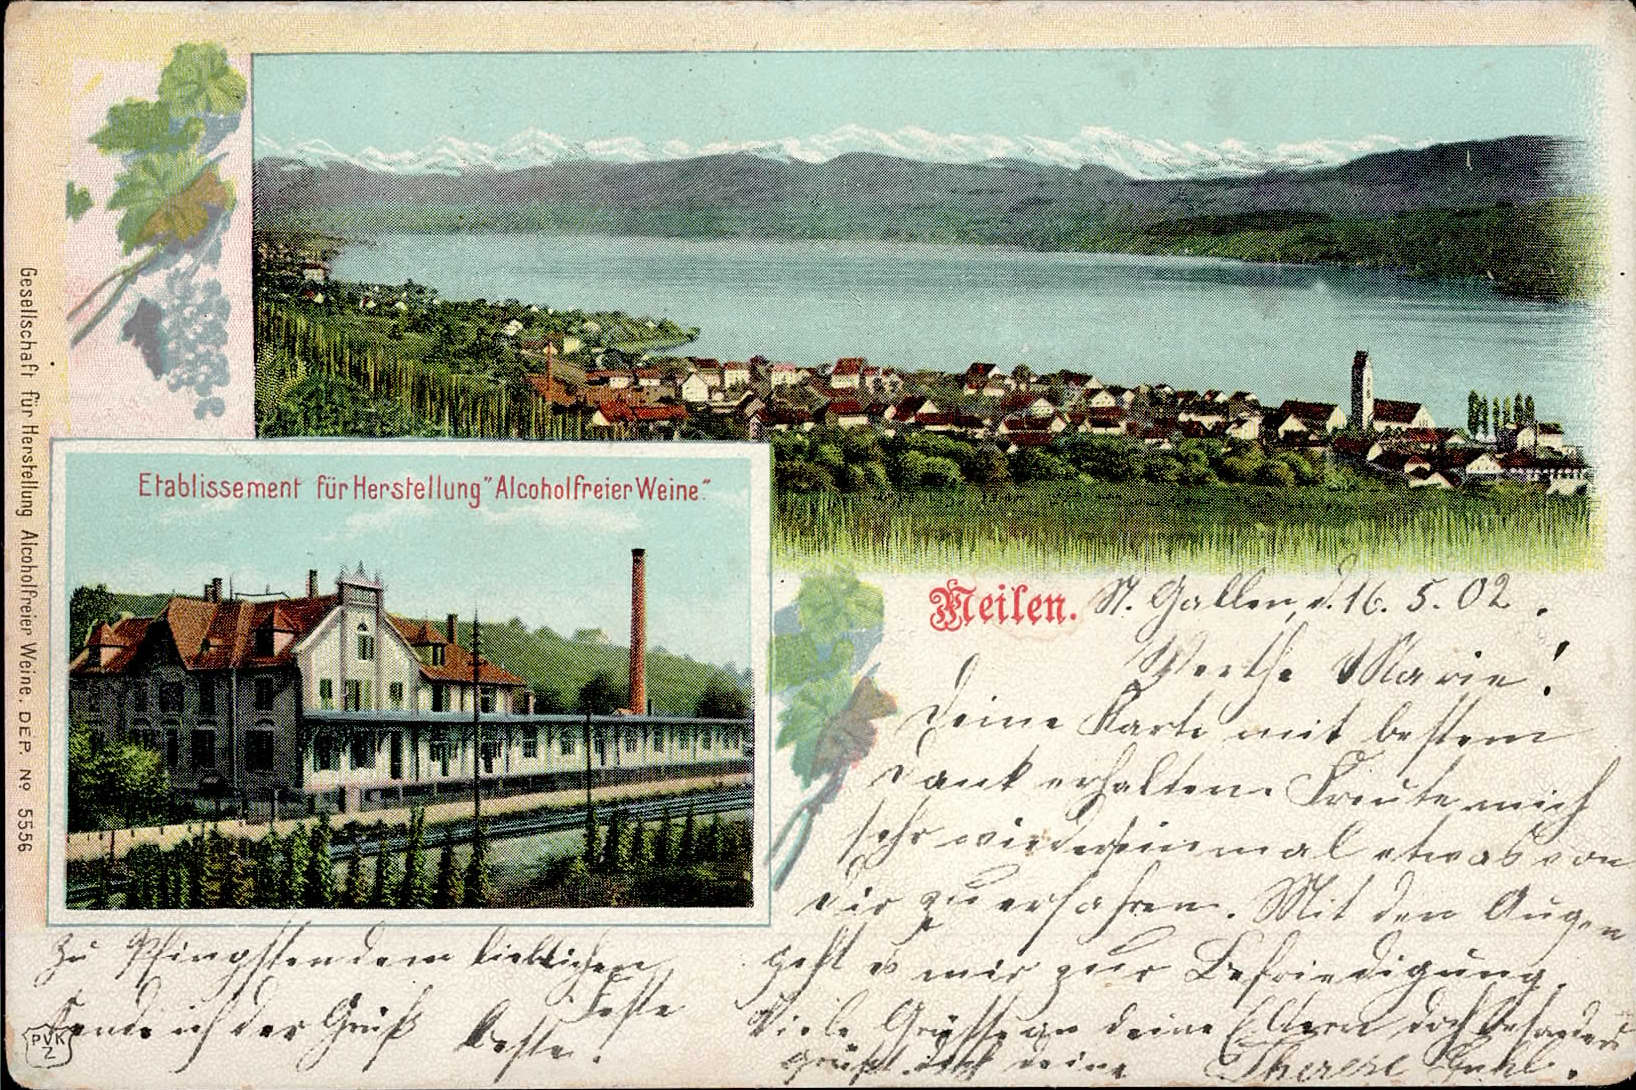 Gesellschaft für Herstellung Alcoholfreier Weine. DEP. No 5556
Etablissement für Herstellung "Alcoholfreier Weine."
Meilen.
St. Gallen, d. 16. 5. 02.
Werthe Marie!
Deine Karte mit bestem
Dank erhalten. Freute mich
sehr wiedereinmal etwas von
Dir zu erfahren. Mit den Augen
geht es mir zur Befriedigung.
Viele Grüsse an deine Eltern doch besonders
grüßt dich deine Therese
Zu Pfingsten dem lieblichen
Feste
sende ich der Grüß
Beste!
PVK
Z